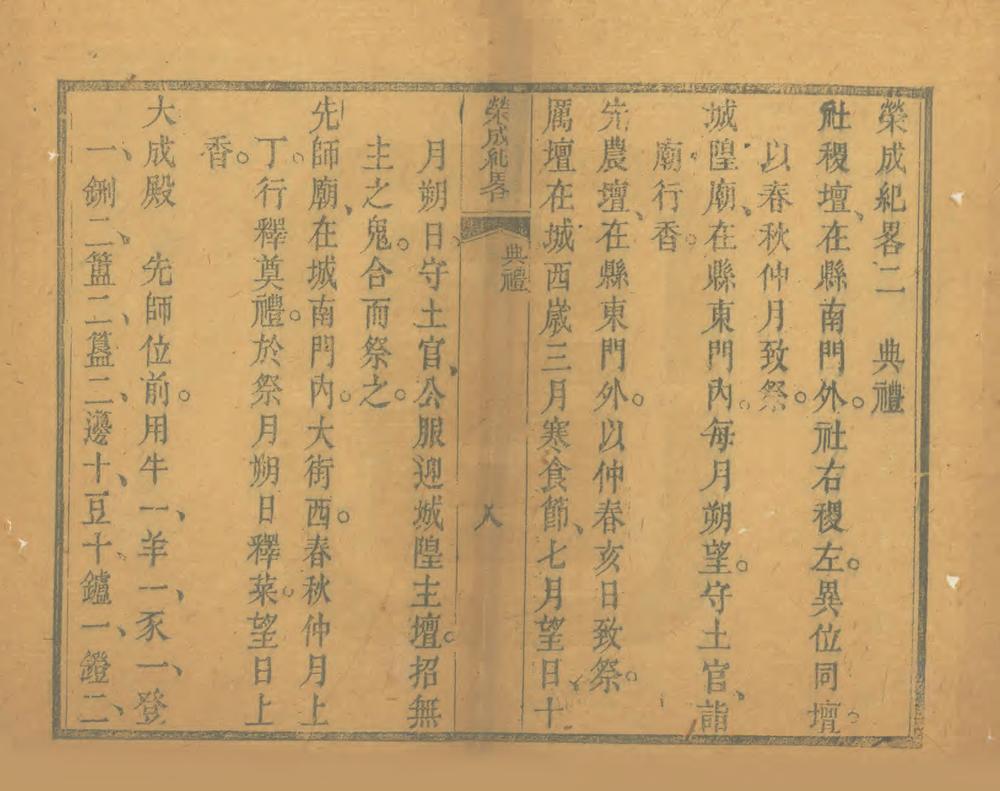 榮成紀畧二　典禮
社稷壇、在縣南門外。社右稷左。異位同壇。
以春秋仲月致祭。
城隍廟、在縣東門內。每月朔望。守土官、詣
廟行香。
先農壇、在縣東門外。以仲春亥日致祭。
厲壇在城西歲三月寒食節、七月望日十
榮成紀畧　典禮　八
月朔日、守土官、公服迎城隍主壇。招無
主之鬼。合而祭之。
先師廟、在城南門內。大街西。春秋仲月上
丁。行釋奠禮。於祭月朔日釋菜。望日上
香。
大成殿　先師位前。用牛一、羊一、豕一、登
一、鉶二、簠二、簋二、籩十、豆十、鑪一、鐙二、